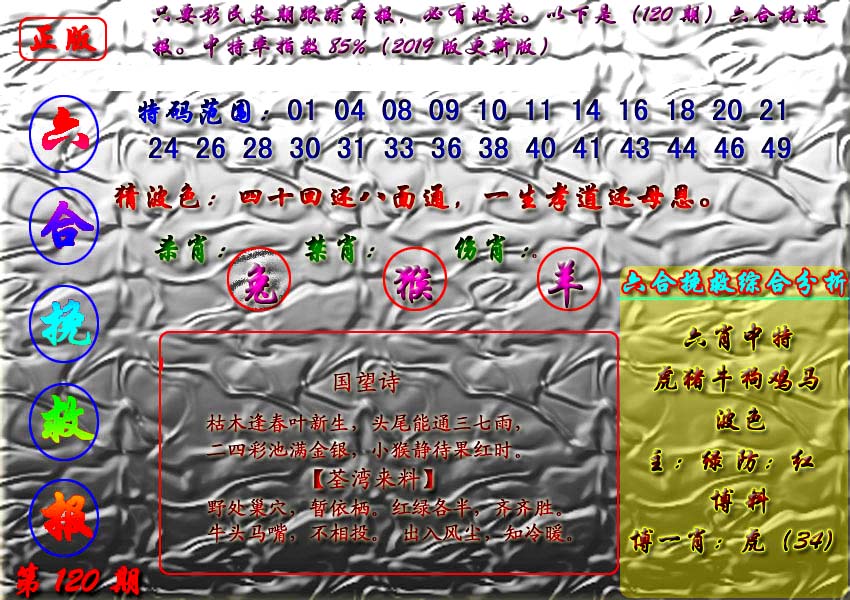 正版
只要彩民长期跟踪本报，必有收获。以下是（120 期）六合挽救
报。中特率指数 85%（2019 版更新版）
六合挽救报
第 120 期
特码范围：01 04 08 09 10 11 14 16 18 20 21
24 26 28 30 31 33 36 38 40 41 43 44 46 49
猜波色：四十回还八面通，一生孝道还母恩。
杀肖：兔 禁肖：猴 伤肖：羊
国望诗
枯木逢春叶新生，头尾能通三七雨，
二四彩池满金银，小猴静待果红时。
【荃湾来料】
野处巢穴，暂依栖。红绿各半，齐齐胜。
牛头马嘴，不相投。 出入风尘，知冷暖。
六合挽救综合分析
六肖中特
虎猪牛狗鸡马
波色
主：绿防：红
博料
博一肖：虎（34）